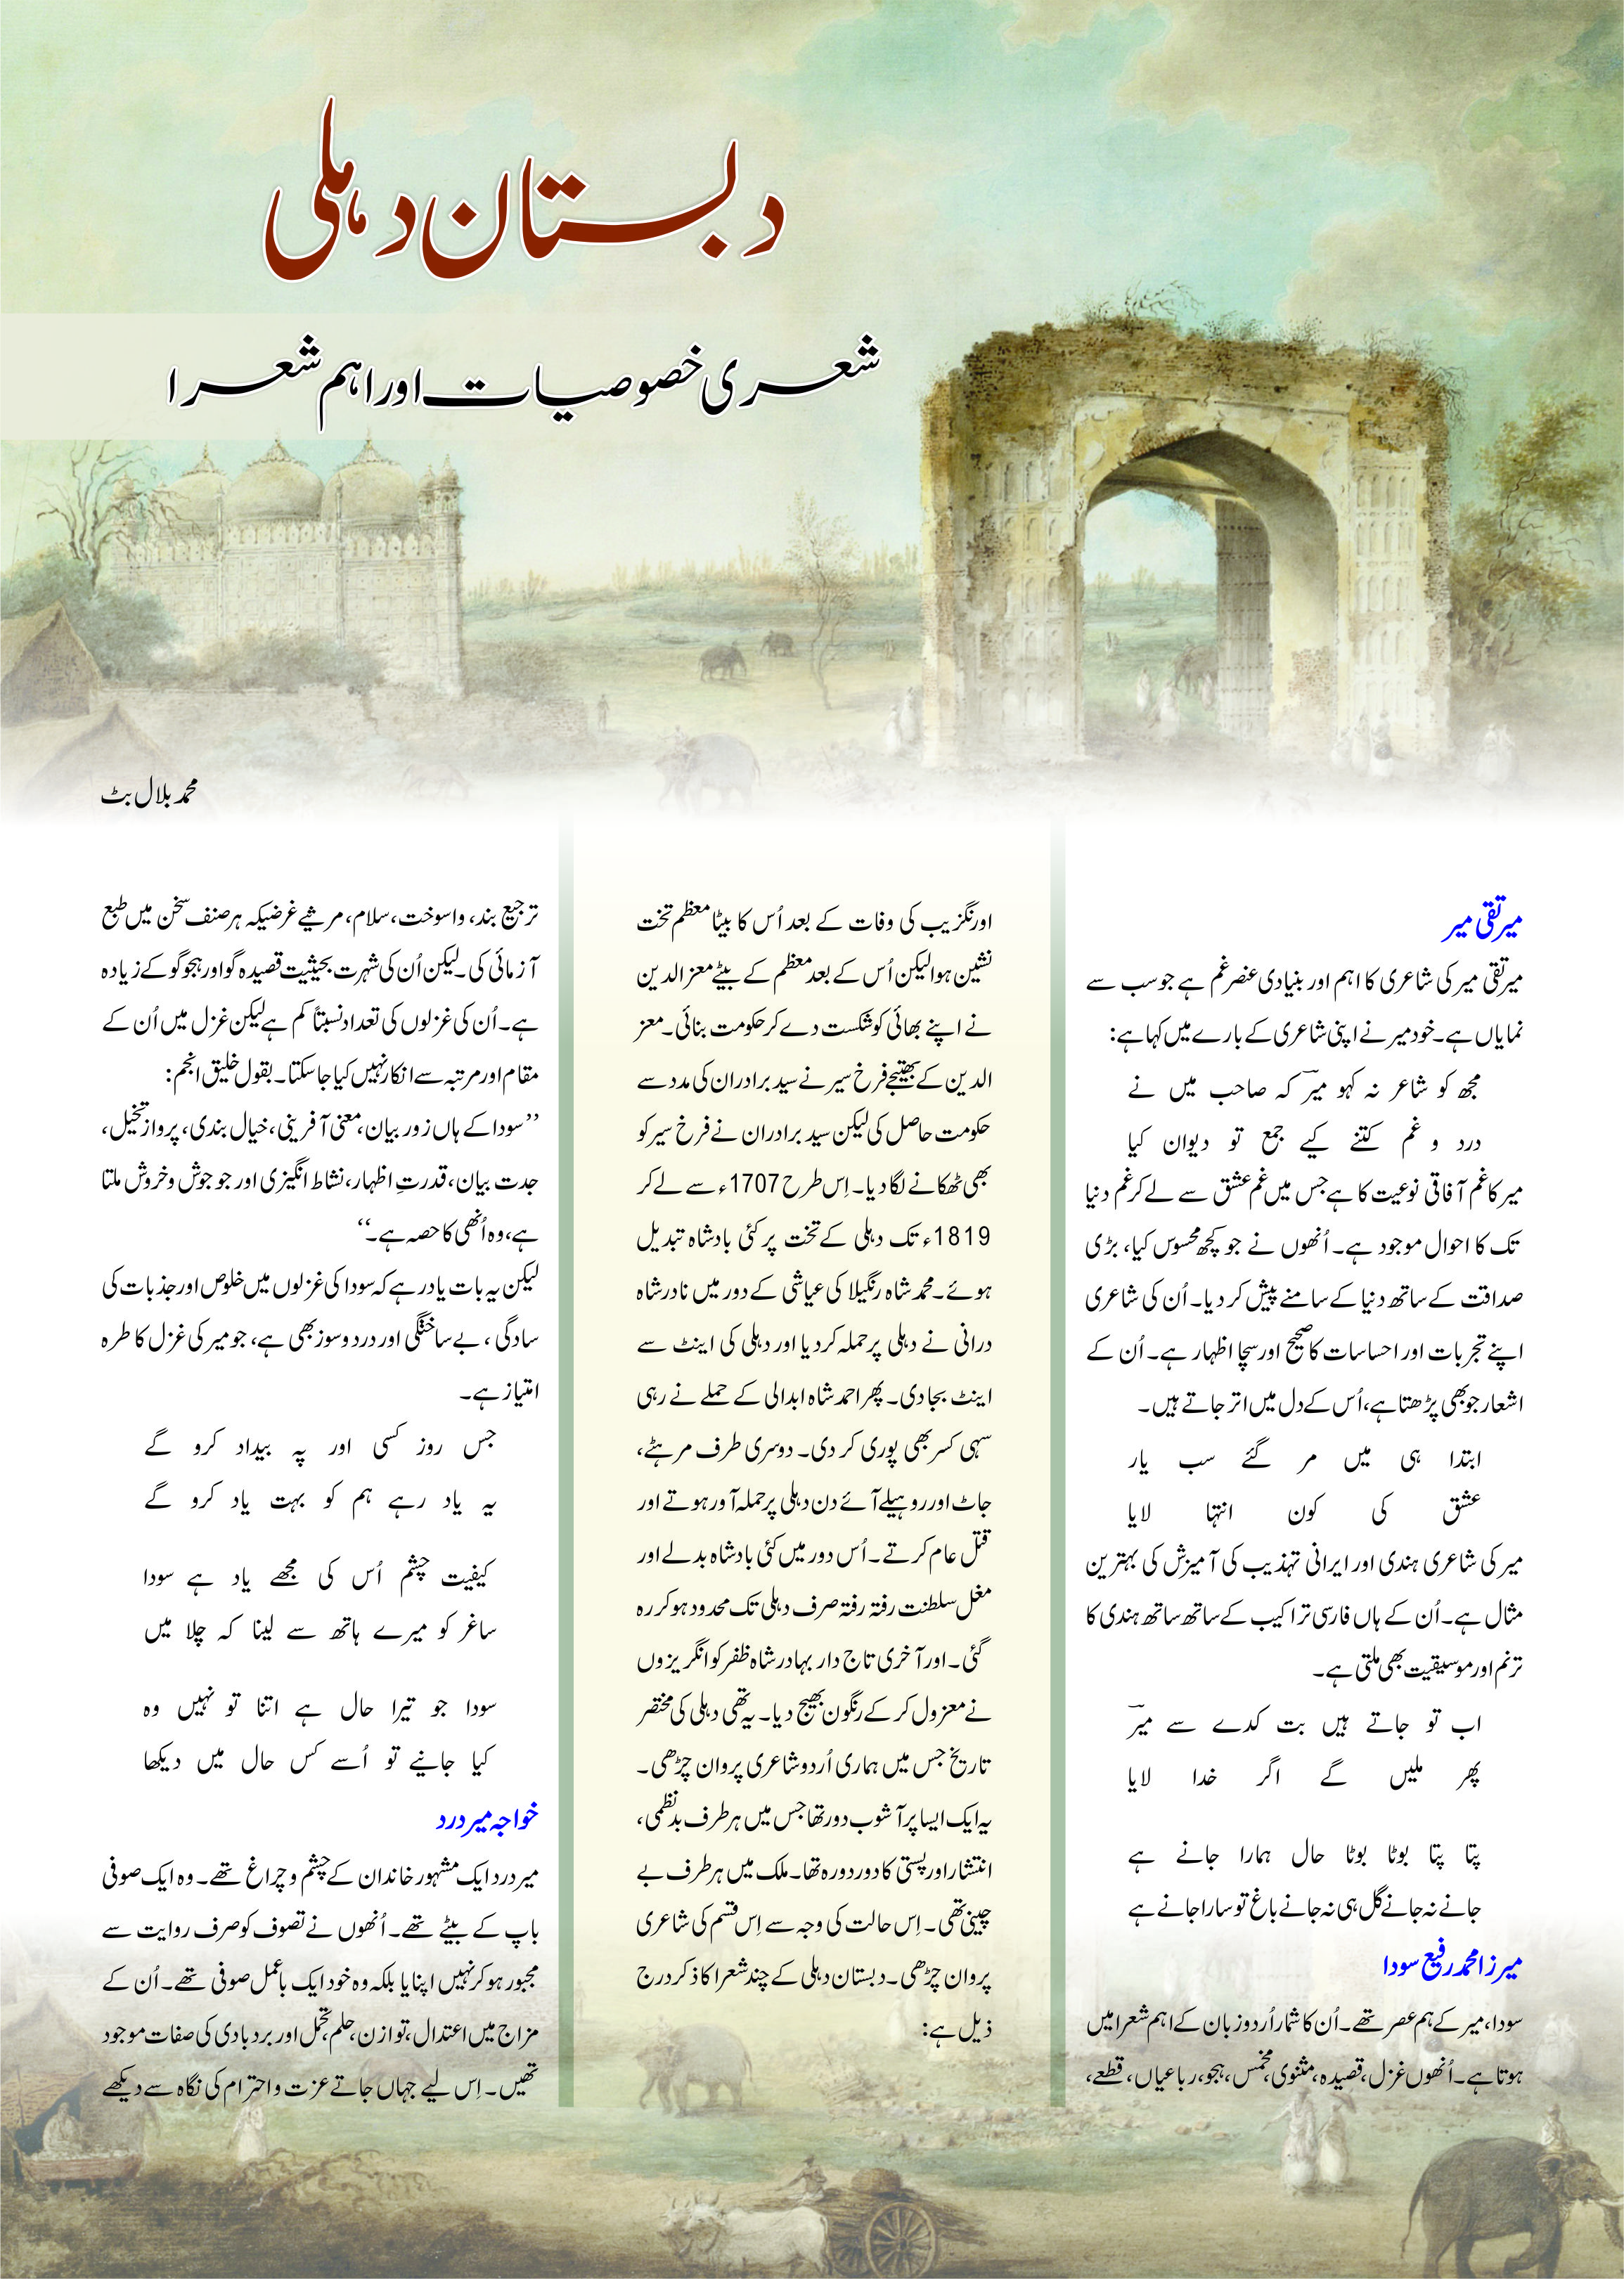 دبستان دہلی
شعری خصوصیات اور اہم شعرا
محمد بلال بٹ
اورنگزیب کی وفات کے بعد اُس کا بیٹا معظم تخت
نشین ہوا لیکن اُس کے بعد معظم کے بیٹے معز الدین
نے اپنے بھائی کو شکست دے کر حکومت بنائی۔ معز
الدین کے بھتیجے فرخ سیر نے سید برادران کی مدد سے
حکومت حاصل کی لیکن سید برادران نے فرخ سیر کو
بھی ٹھکانے لگا دیا۔ اِس طرح 1707ء سے لے کر
1819ء تک دہلی کے تخت پر کئی بادشاہ تبدیل
ہوئے۔ محمد شاہ رنگیلا کی عیاشی کے دور میں نادر شاہ
درانی نے دہلی پر حملہ کر دیا اور دہلی کی اینٹ سے
اینٹ بجا دی۔ پھر احمد شاہ ابدالی کے حملے نے رہی
سہی کسر بھی پوری کر دی۔ دوسری طرف مرہٹے،
جاٹ اور روہیلے آئے دن دہلی پر حملہ آور ہوتے اور
قتل عام کرتے۔ اُس دور میں کئی بادشاہ بدلے اور
مغل سلطنت رفتہ رفتہ صرف دہلی تک محدود ہو کر رہ
گئی۔ اور آخری تاج دار بہادر شاہ ظفر کو انگریزوں
نے معزول کر کے رنگون بھیج دیا۔ یہ تھی دہلی کی مختصر
تاریخ جس میں ہماری اُردو شاعری پروان چڑھی۔
یہ ایک ایسا پر آشوب دور تھا جس میں ہر طرف بدنظمی،
انتشار اور پستی کا دور دورہ تھا۔ ملک میں ہر طرف بے
چینی تھی۔ اِس حالت کی وجہ سے اِس قسم کی شاعری
پروان چڑھی۔ دبستان دہلی کے چند شعرا کا ذکر درج
ذیل ہے:
میر تقی میر
میر تقی میر کی شاعری کا اہم اور بنیادی عنصر غم ہے جو سب سے
نمایاں ہے۔ خود میر نے اپنی شاعری کے بارے میں کہا ہے:
مجھ کو شاعر نہ کہو میرؔ کہ صاحب میں نے
درد و غم کتنے کیے جمع تو دیوان کیا
میر کا غم آفاقی نوعیت کا ہے جس میں غم عشق سے لے کر غم دنیا
تک کا احوال موجود ہے۔ اُنھوں نے جو کچھ محسوس کیا، بڑی
صداقت کے ساتھ دنیا کے سامنے پیش کر دیا۔ اُن کی شاعری
اپنے تجربات اور احساسات کا صحیح اور سچا اظہار ہے۔ اُن کے
اشعار جو بھی پڑھتا ہے، اُس کے دل میں اتر جاتے ہیں۔
ابتدا ہی میں مر گئے سب یار
عشق کی کون انتہا لایا
میر کی شاعری ہندی اور ایرانی تہذیب کی آمیزش کی بہترین
مثال ہے۔ اُن کے ہاں فارسی تراکیب کے ساتھ ساتھ ہندی کا
ترنم اور موسیقیت بھی ملتی ہے۔
اب تو جاتے ہیں بت کدے سے میرؔ
پھر ملیں گے اگر خدا لایا
پتا پتا بوٹا بوٹا حال ہمارا جانے ہے
جانے نہ جانے گل ہی نہ جانے باغ تو سارا جانے ہے
میرزا محمد رفیع سودا
سودا، میر کے ہم عصر تھے۔ اُن کا شمار اُردو زبان کے اہم شعرا میں
ہوتا ہے۔ اُنھوں غزل، قصیدہ، مثنوی، مخمس، ہجو، رباعیاں، قطعے،
ترجیع بند، واسوخت، سلام، مرثیے غرضیکہ ہر صنف سخن میں طبع
آزمائی کی۔ لیکن اُن کی شہرت بحیثیت قصیدہ گو اور ہجو گو کے زیادہ
ہے۔ اُن کی غزلوں کی تعداد نسبتاً کم ہے لیکن غزل میں اُن کے
مقام اور مرتبہ سے انکار نہیں کیا جا سکتا۔ بقول خلیق انجم:
’’سودا کے ہاں زور بیان، معنی آفرینی، خیال بندی، پرواز تخیل،
جدت بیان، قدرتِ اظہار، نشاط انگیزی اور جو جوش و خروش ملتا
ہے، وہ اُنھی کا حصہ ہے۔‘‘
لیکن یہ بات یاد رہے کہ سودا کی غزلوں میں خلوص اور جذبات کی
سادگی، بے ساختگی اور درد و سوز بھی ہے، جو میر کی غزل کا طرہ
امتیاز ہے۔
جس روز کسی اور پہ بیداد کرو گے
یہ یاد رہے ہم کو بہت یاد کرو گے
کیفیت چشم اُس کی مجھے یاد ہے سودا
ساغر کو میرے ہاتھ سے لینا کہ چلا میں
سودا جو تیرا حال ہے اتنا تو نہیں وہ
کیا جانیے تو اُسے کس حال میں دیکھا
خواجہ میر درد
میر درد ایک مشہور خاندان کے چشم و چراغ تھے۔ وہ ایک صوفی
باپ کے بیٹے تھے۔ اُنھوں نے تصوف کو صرف روایت سے
مجبور ہو کر نہیں اپنایا بلکہ وہ خود ایک باعمل صوفی تھے۔ اُن کے
مزاج میں اعتدال، توازن، حلم، تحمل اور بردباری کی صفات موجود
تھیں۔ اِس لیے جہاں جاتے عزت و احترام کی نگاہ سے دیکھے